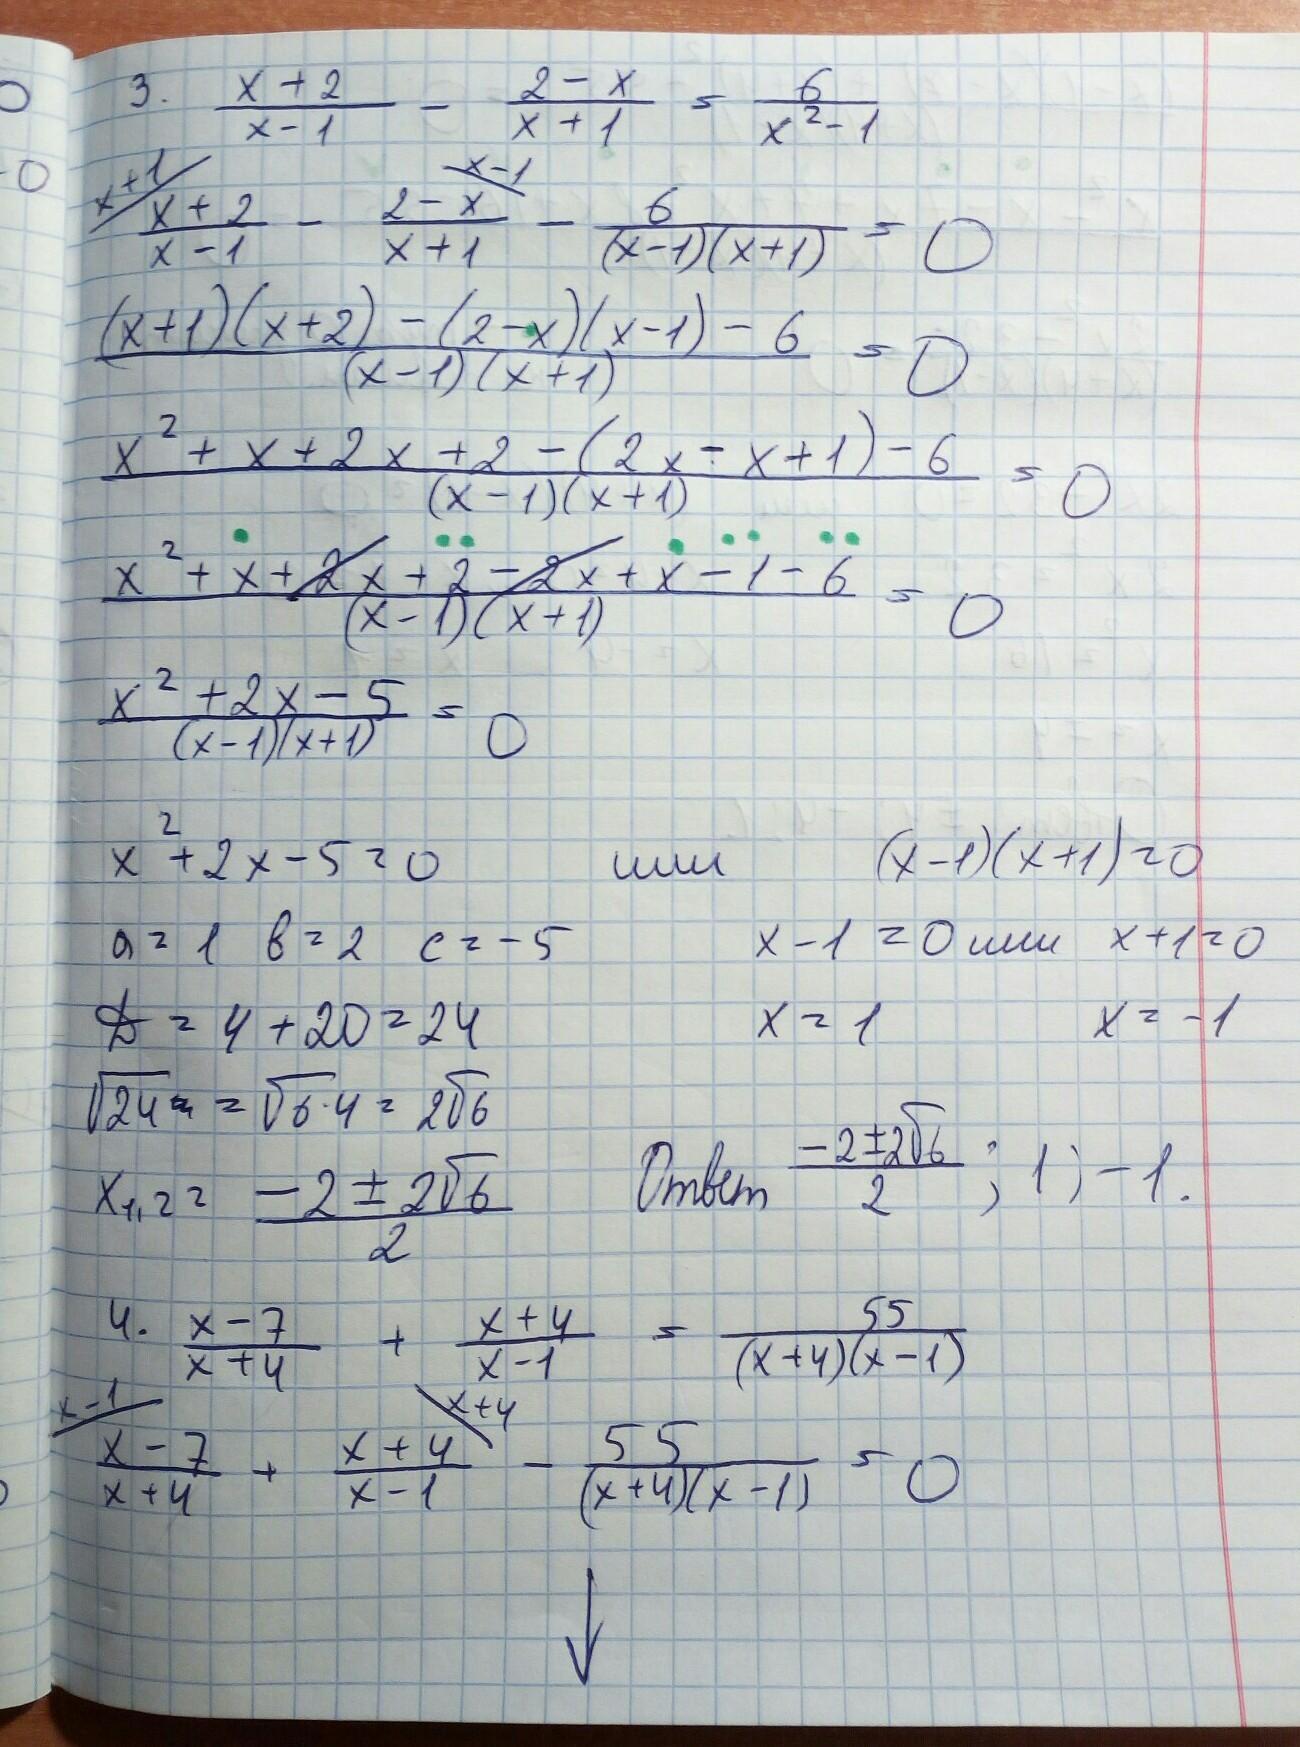 3. (x+2)/(x-1) - (2-x)/(x+1) = 6/(x²-1)
x+1 x-1
(x+2)/(x-1) - (2-x)/(x+1) - 6/((x-1)(x+1)) = 0
((x+1)(x+2) - (2-x)(x-1) - 6)/((x-1)(x+1)) = 0
(x² + x + 2x + 2 - (2x - x + 1) - 6)/((x-1)(x+1)) = 0
(x² + x + 2x + 2 - 2x + x - 1 - 6)/((x-1)(x+1)) = 0
(x² + 2x - 5)/((x-1)(x+1)) = 0
x² + 2x - 5 = 0 или (x-1)(x+1) = 0
a = 1 в = 2 c = -5 x - 1 = 0 или x + 1 = 0
D = 4 + 20 = 24 x = 1 x = -1
√24 = √6·4 = 2√6
x1,2 = (-2 ± 2√6)/2 Ответ (-2±2√6)/2 ; 1 ; -1.
4. (x-7)/(x+4) + (x+4)/(x-1) = 55/((x+4)(x-1))
x-1 x+4
(x-7)/(x+4) + (x+4)/(x-1) - 55/((x+4)(x-1)) = 0